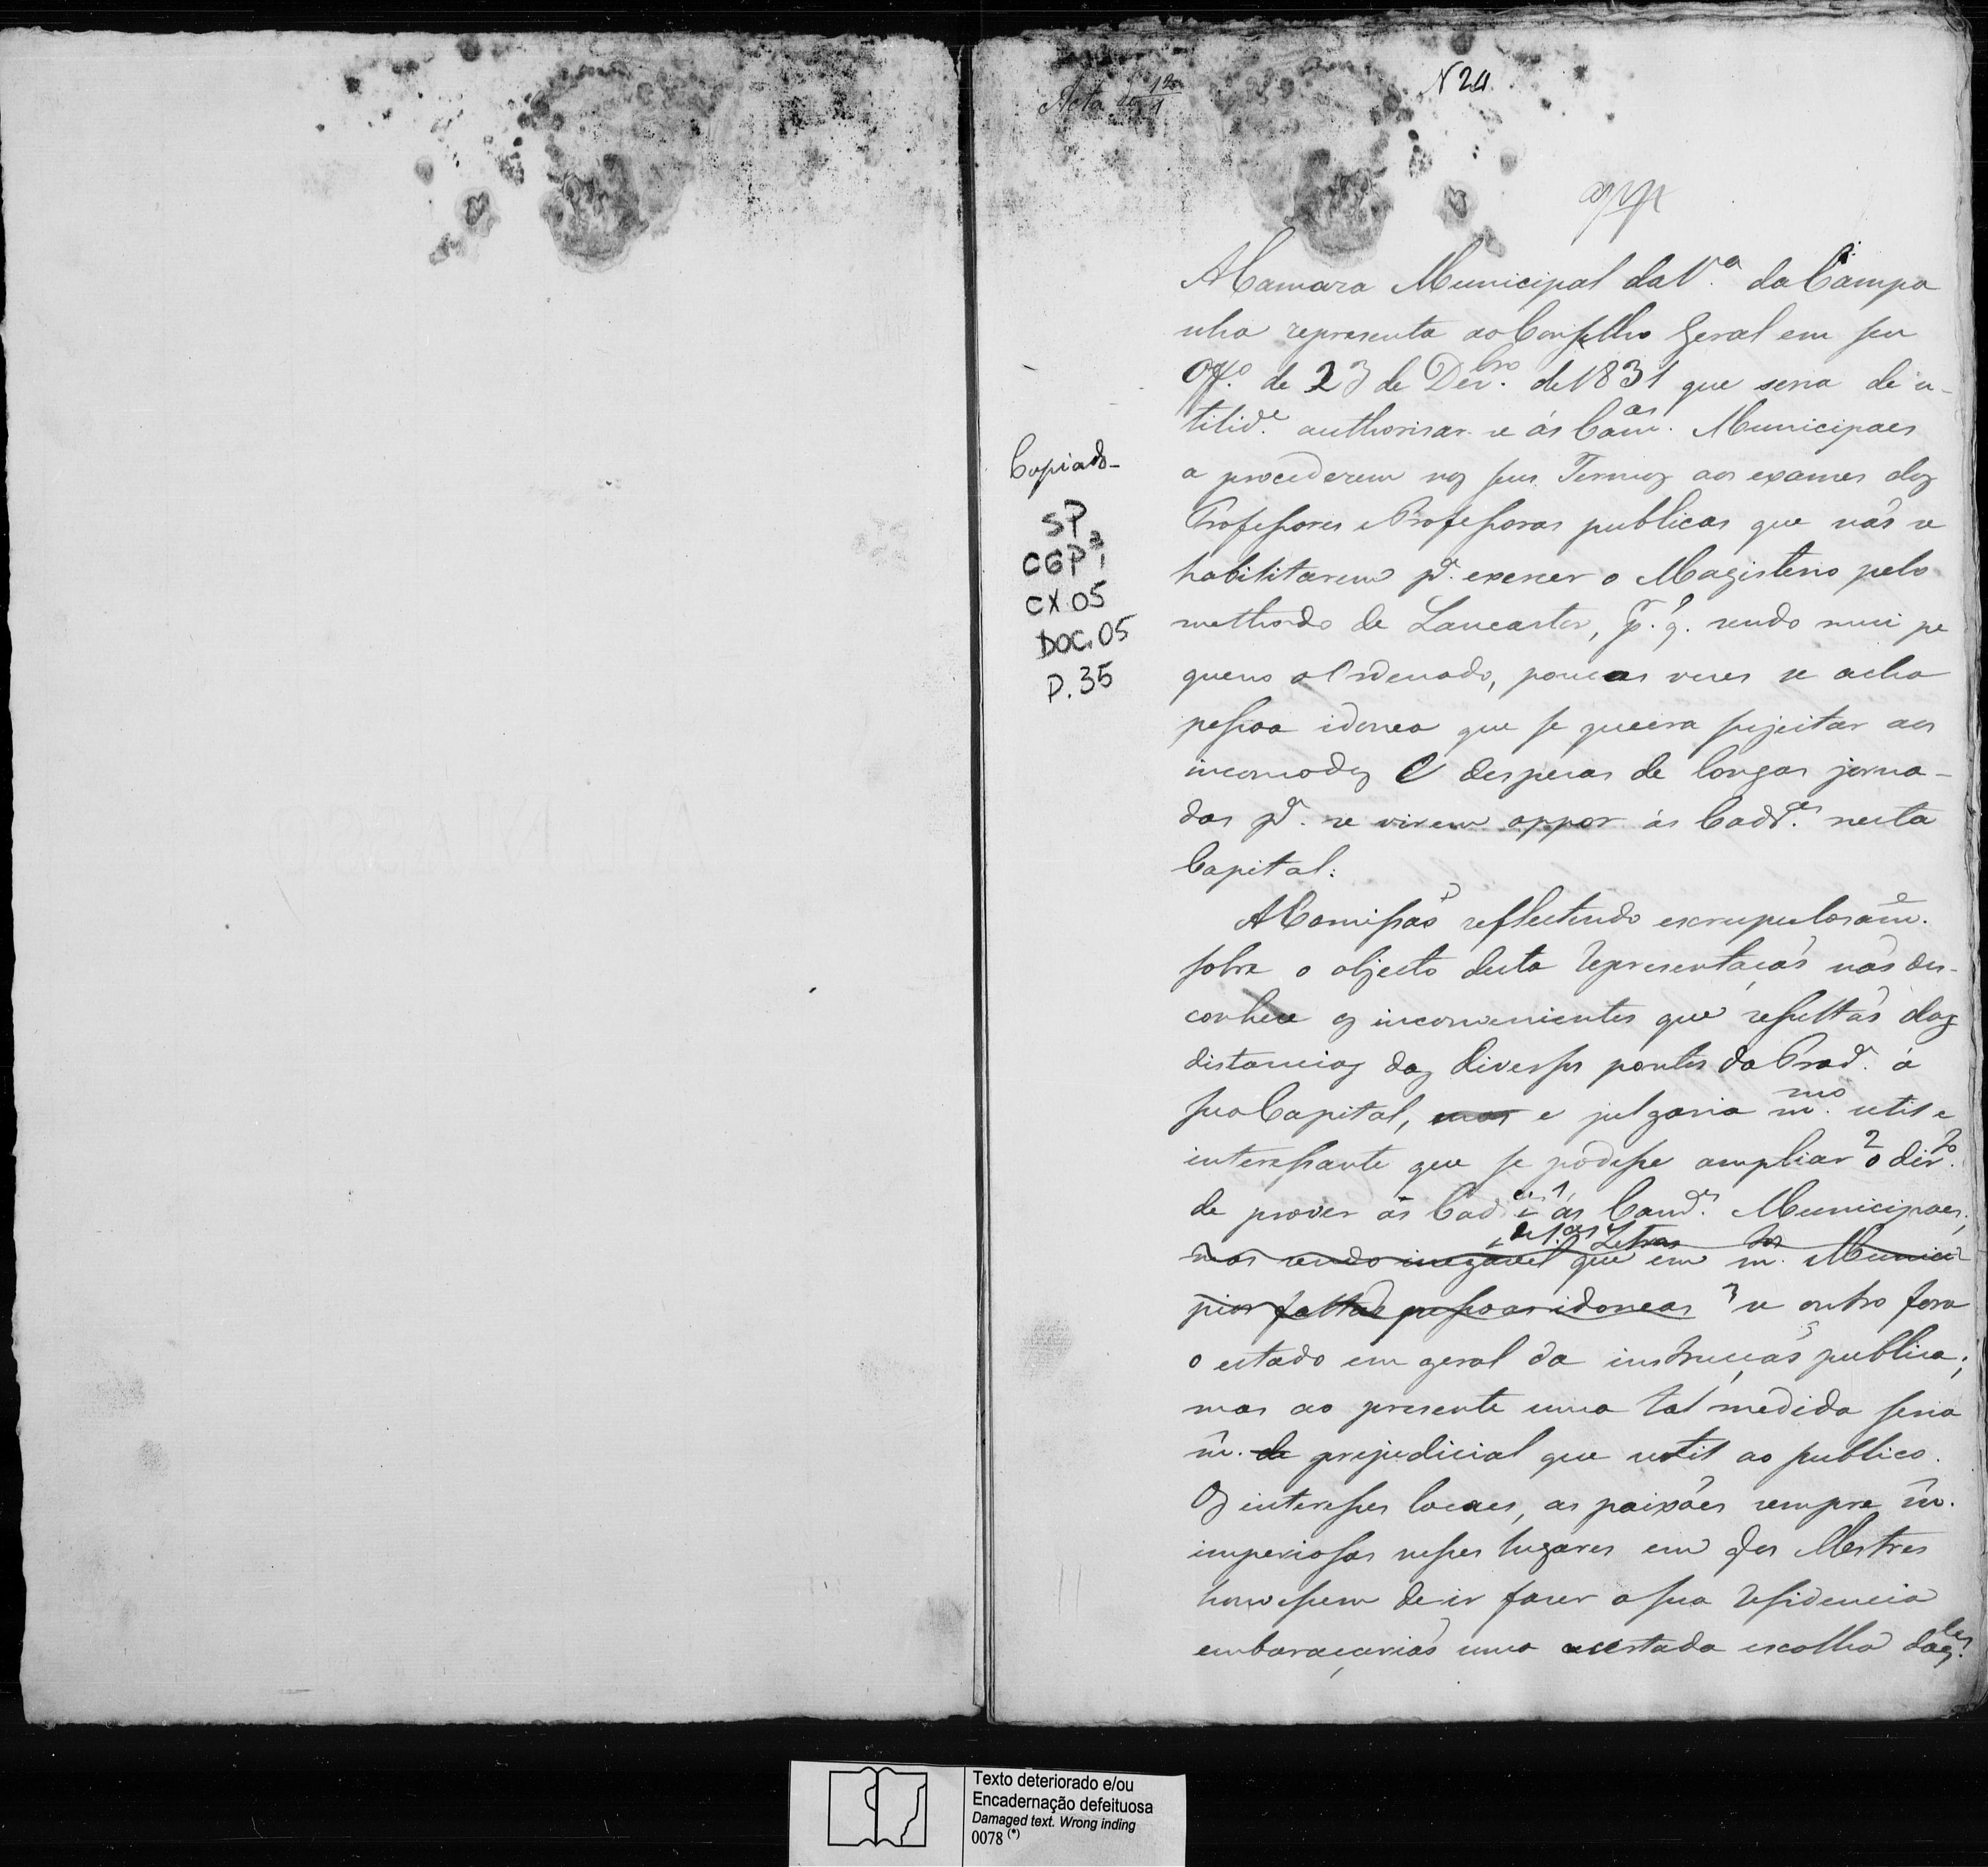 Acta de 12/1
N 24.
app
A Camara Municipal da V.ª da Campa
nha representa ao Conselho Geral em seu
Off.º de 23 de Dez.bro de 1831 que seria de u-
tilid.e authorisar-se ás Cam.as Municipaes
a procederem nos seus Termos aos exames dos
Professores e Professoras publicas que não se
habilitarem p.ª exercer o Magisterio pelo
methodo de Lancaster, p.r q. sendo mui pe
queno o Ordenado, poucas vezes se acha
pessoa idonea que se queira sujeitar aos
incomodos e despezas de longas jorna-
das p.ª se virem oppor ás Cadr.as nesta
Capital:
A Comissaõ reflectindo escrupulosam.e
sobre o objecto desta representaçaõ naõ des-
conhece os inconvenientes que resultaõ das
distancias dos diversos pontos da Prov.ª á
sua Capital, mas e julgaria m.mo util e
interessante que se podesse ampliar 2 o dir.to
de prover as Cad.es 1 ás Cam.as Municipaes,
de 1.as Letras
mas sendo inegavel que em m.tos Munici
pios faltaõ pessoas idoneas 3 se outro fora
o estado em geral da instrucçaõ publica;
mas ao presente uma tal medida seria
m. de prejudicial que util ao publico.
Os interesses locaes, as paixões sempre m.
imperiosas nesses lugares em q os Mestres
houvessem de ir fazer a sua residencia
embaraçariaõ uma acertada escolha daq.les
Copiado-
SP
CGP¹
CX.05
DOC.05
P.35
Texto deteriorado e/ou
Encadernação defeituosa
Damaged text. Wrong inding
0078 (*)